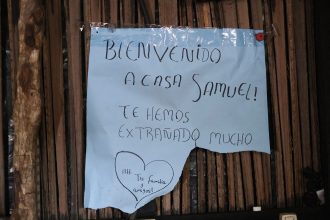 BIENVENIDO
A CASA SAMUEL!
TE HEMOS
EXTRAÑADO MUCHO
Tu familia
y
amigos!